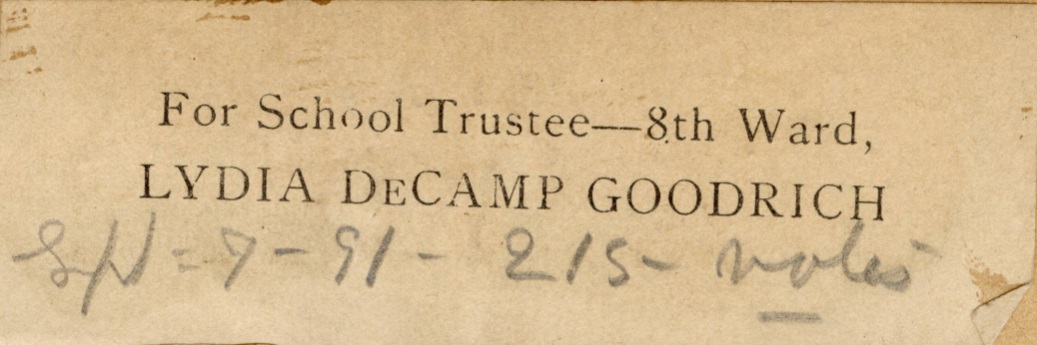 For School Trustee—8th Ward,
LYDIA DECAMP GOODRICH
Spt = 7 - 91 - 215 - votes